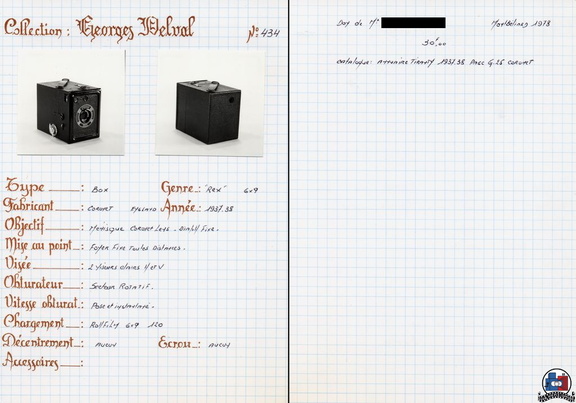 Collection : Georges Delval N° 434
Type : Box Genre : "Rex" 6x9
Fabricant : Coronet Année : 1937.38
Objectif : Menisque Coronet Lens .
Mise au point : Foyer Fixe Toutes Distances .
Visée : 2 Viseurs clairs H et V
Obturateur : Secteur Rotatif .
Vitesse obturat. : Pose et instantané .
Chargement : Rollfilm 6x9 120
Décentrement : Aucun Ecrou : Aucun
Accessoires :
Don de Mr Montbéliard 1978
90f,00
Catalogue : Tiranty 1937.38 Page G.26 Coronet